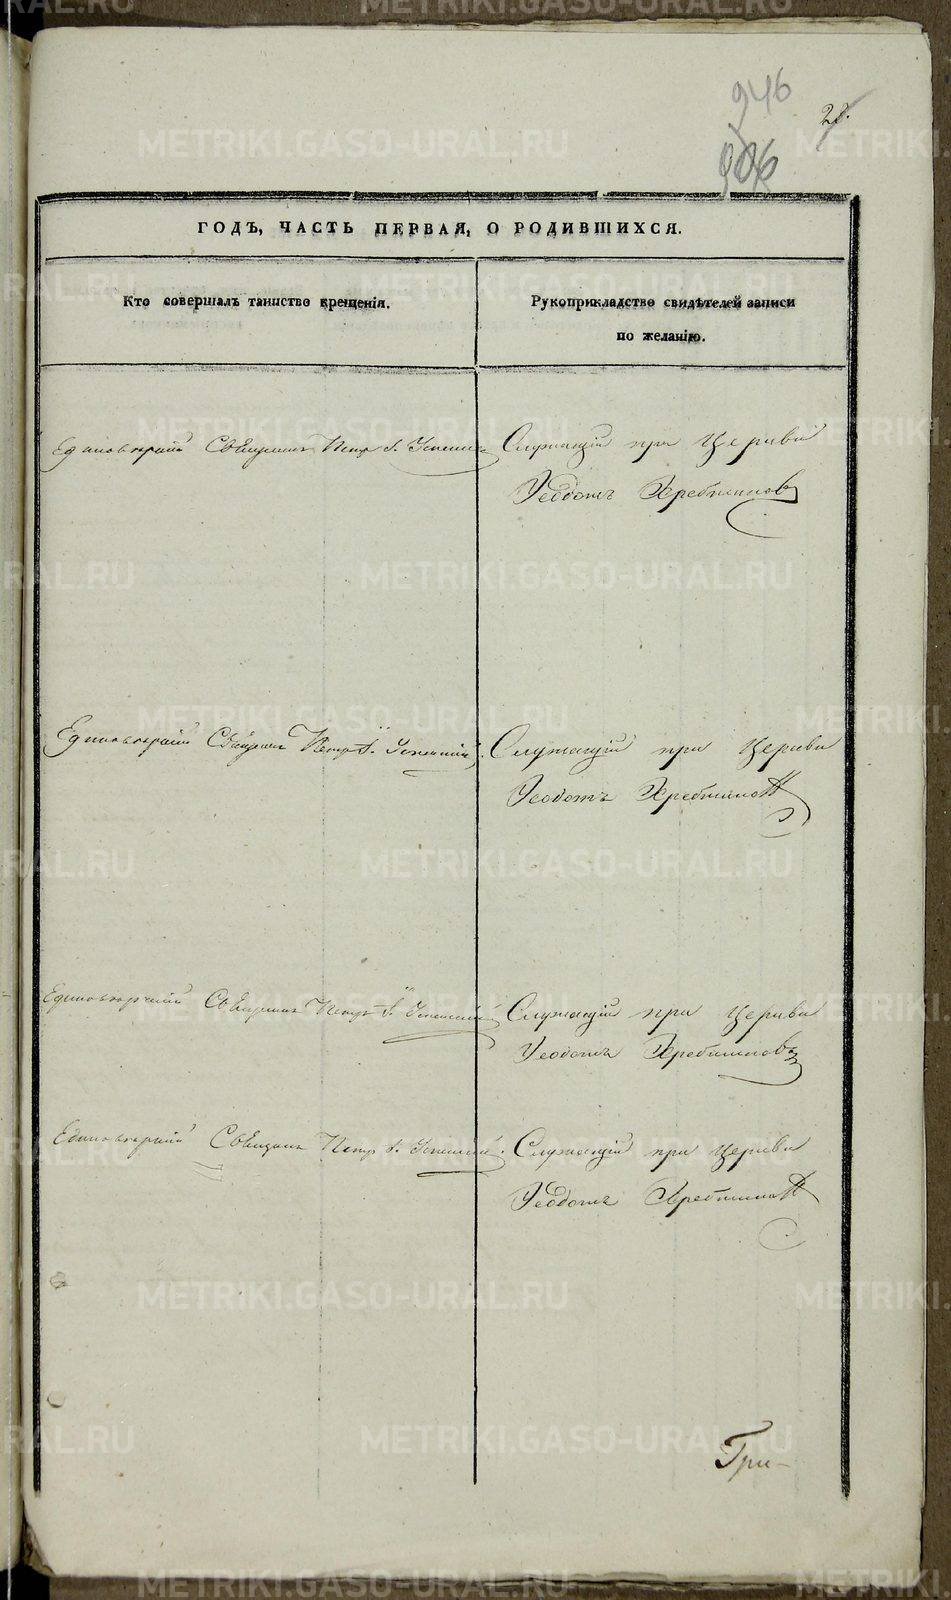 946
906
28.
ГОДЪ, ЧАСТЬ ПЕРВАЯ, О РОДИВШИХСЯ.
Кто совершалъ таинство крещенія.
Рукоприкладство свидѣтелей записи
по желанію.
Единоверчій Священ Петръ
Служащій при Церкви
Ѳеодотъ Хребтиковъ
Единоверчій Священ Петръ
Служащій при Церкви
Ѳеодотъ Хребтиковъ
Единоверчій Священ Петръ
Служащій при Церкви
Ѳеодотъ Хребтиковъ
Единоверчій Священ Петръ
Служащій при Церкви
Ѳеодотъ Хребтиковъ
Гри-
METRIKI.GASO-URAL.RU